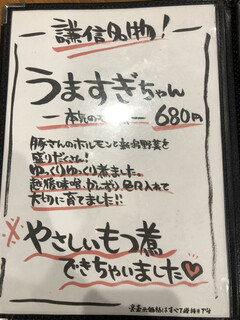 謙信名物！
うますぎちゃん
680円
豚さんのホルモンと新潟野菜を
盛りだくさん！
ゆっくりゆっくり煮ました。
越後味噌、かんずり
入れて
大切に育てました!!
※やさしいもつ煮
できちゃいました♡